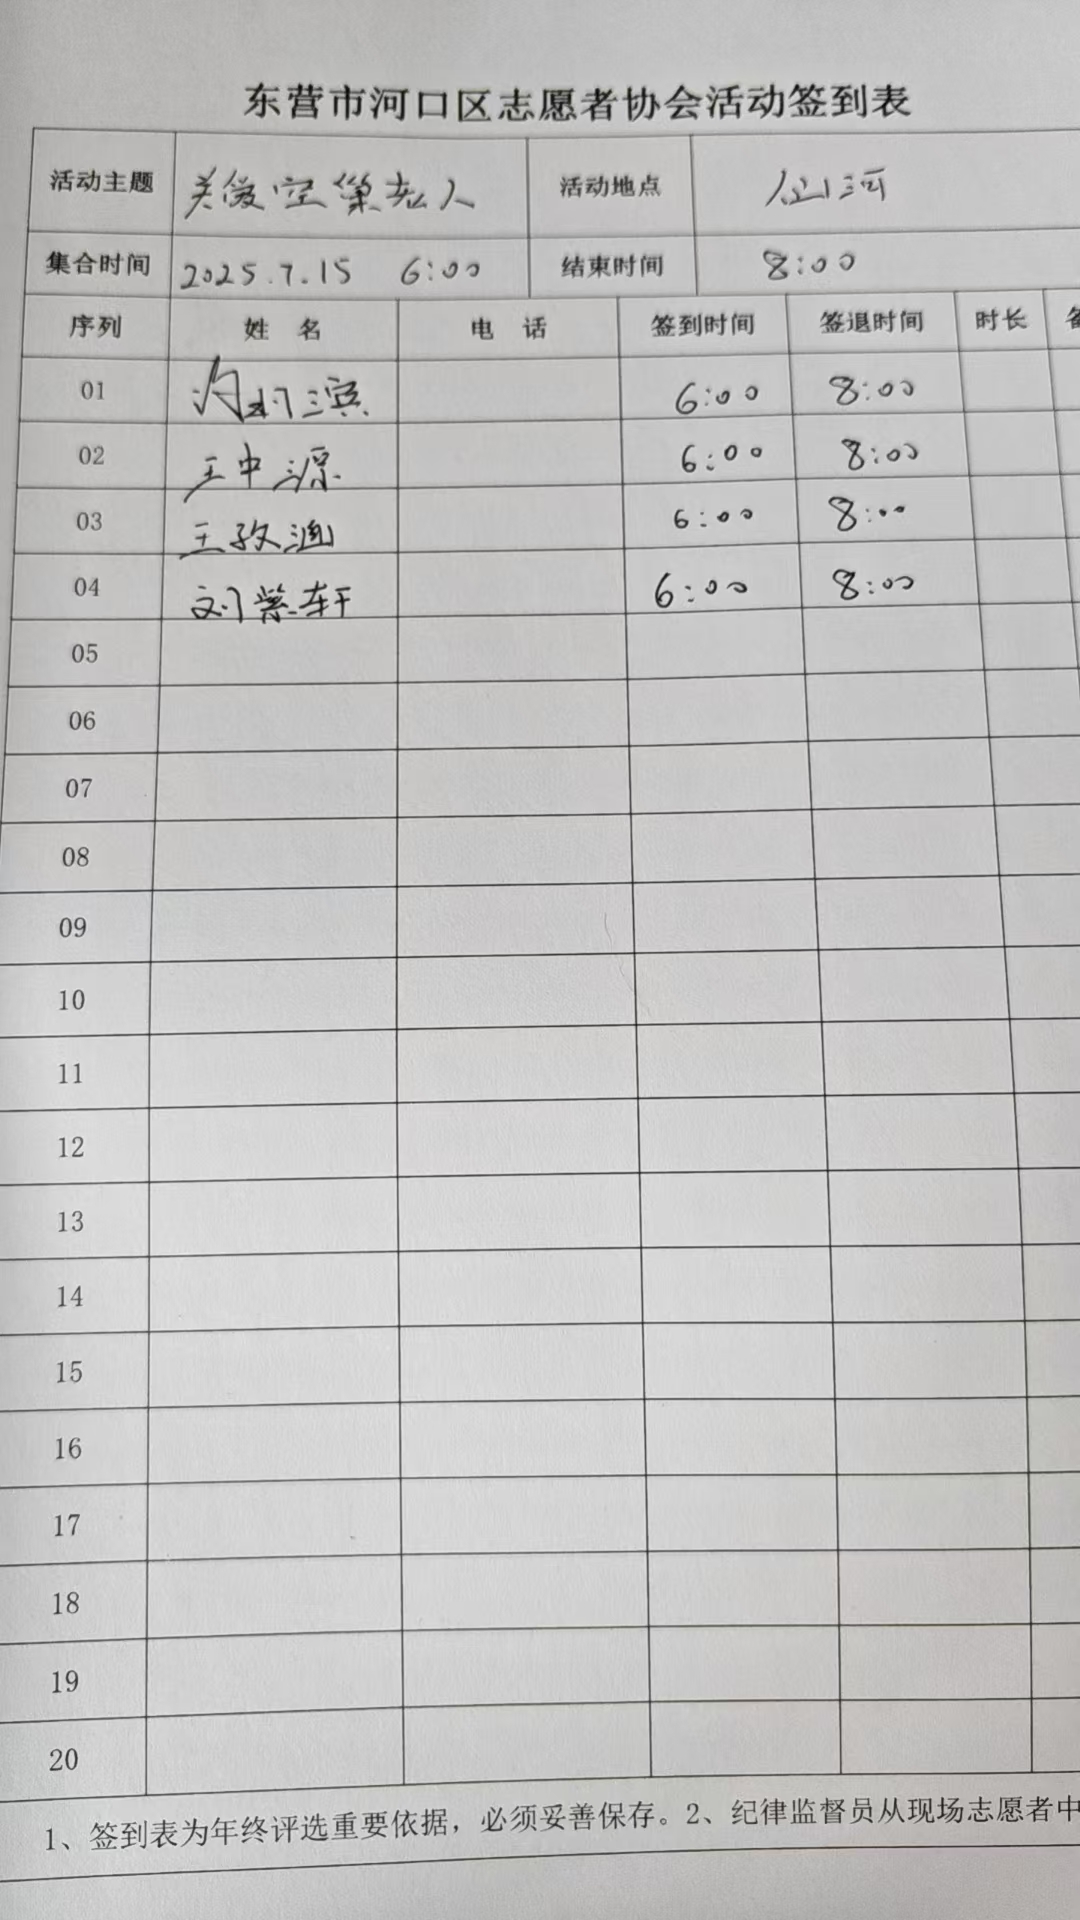 东营市河口区志愿者协会活动签到表
活动主题 关爱空巢老人 活动地点 仙河
集合时间 2025.7.15 6:00 结束时间 8:00
序列 姓名 电话 签到时间 签退时间 时长 备
01 滨 6:00 8:00
02 王中源 6:00 8:00
03 王孜涵 6:00 8:00
04 刘紫轩 6:00 8:00
05
06
07
08
09
10
11
12
13
14
15
16
17
18
19
20
1、签到表为年终评选重要依据，必须妥善保存。2、纪律监督员从现场志愿者中